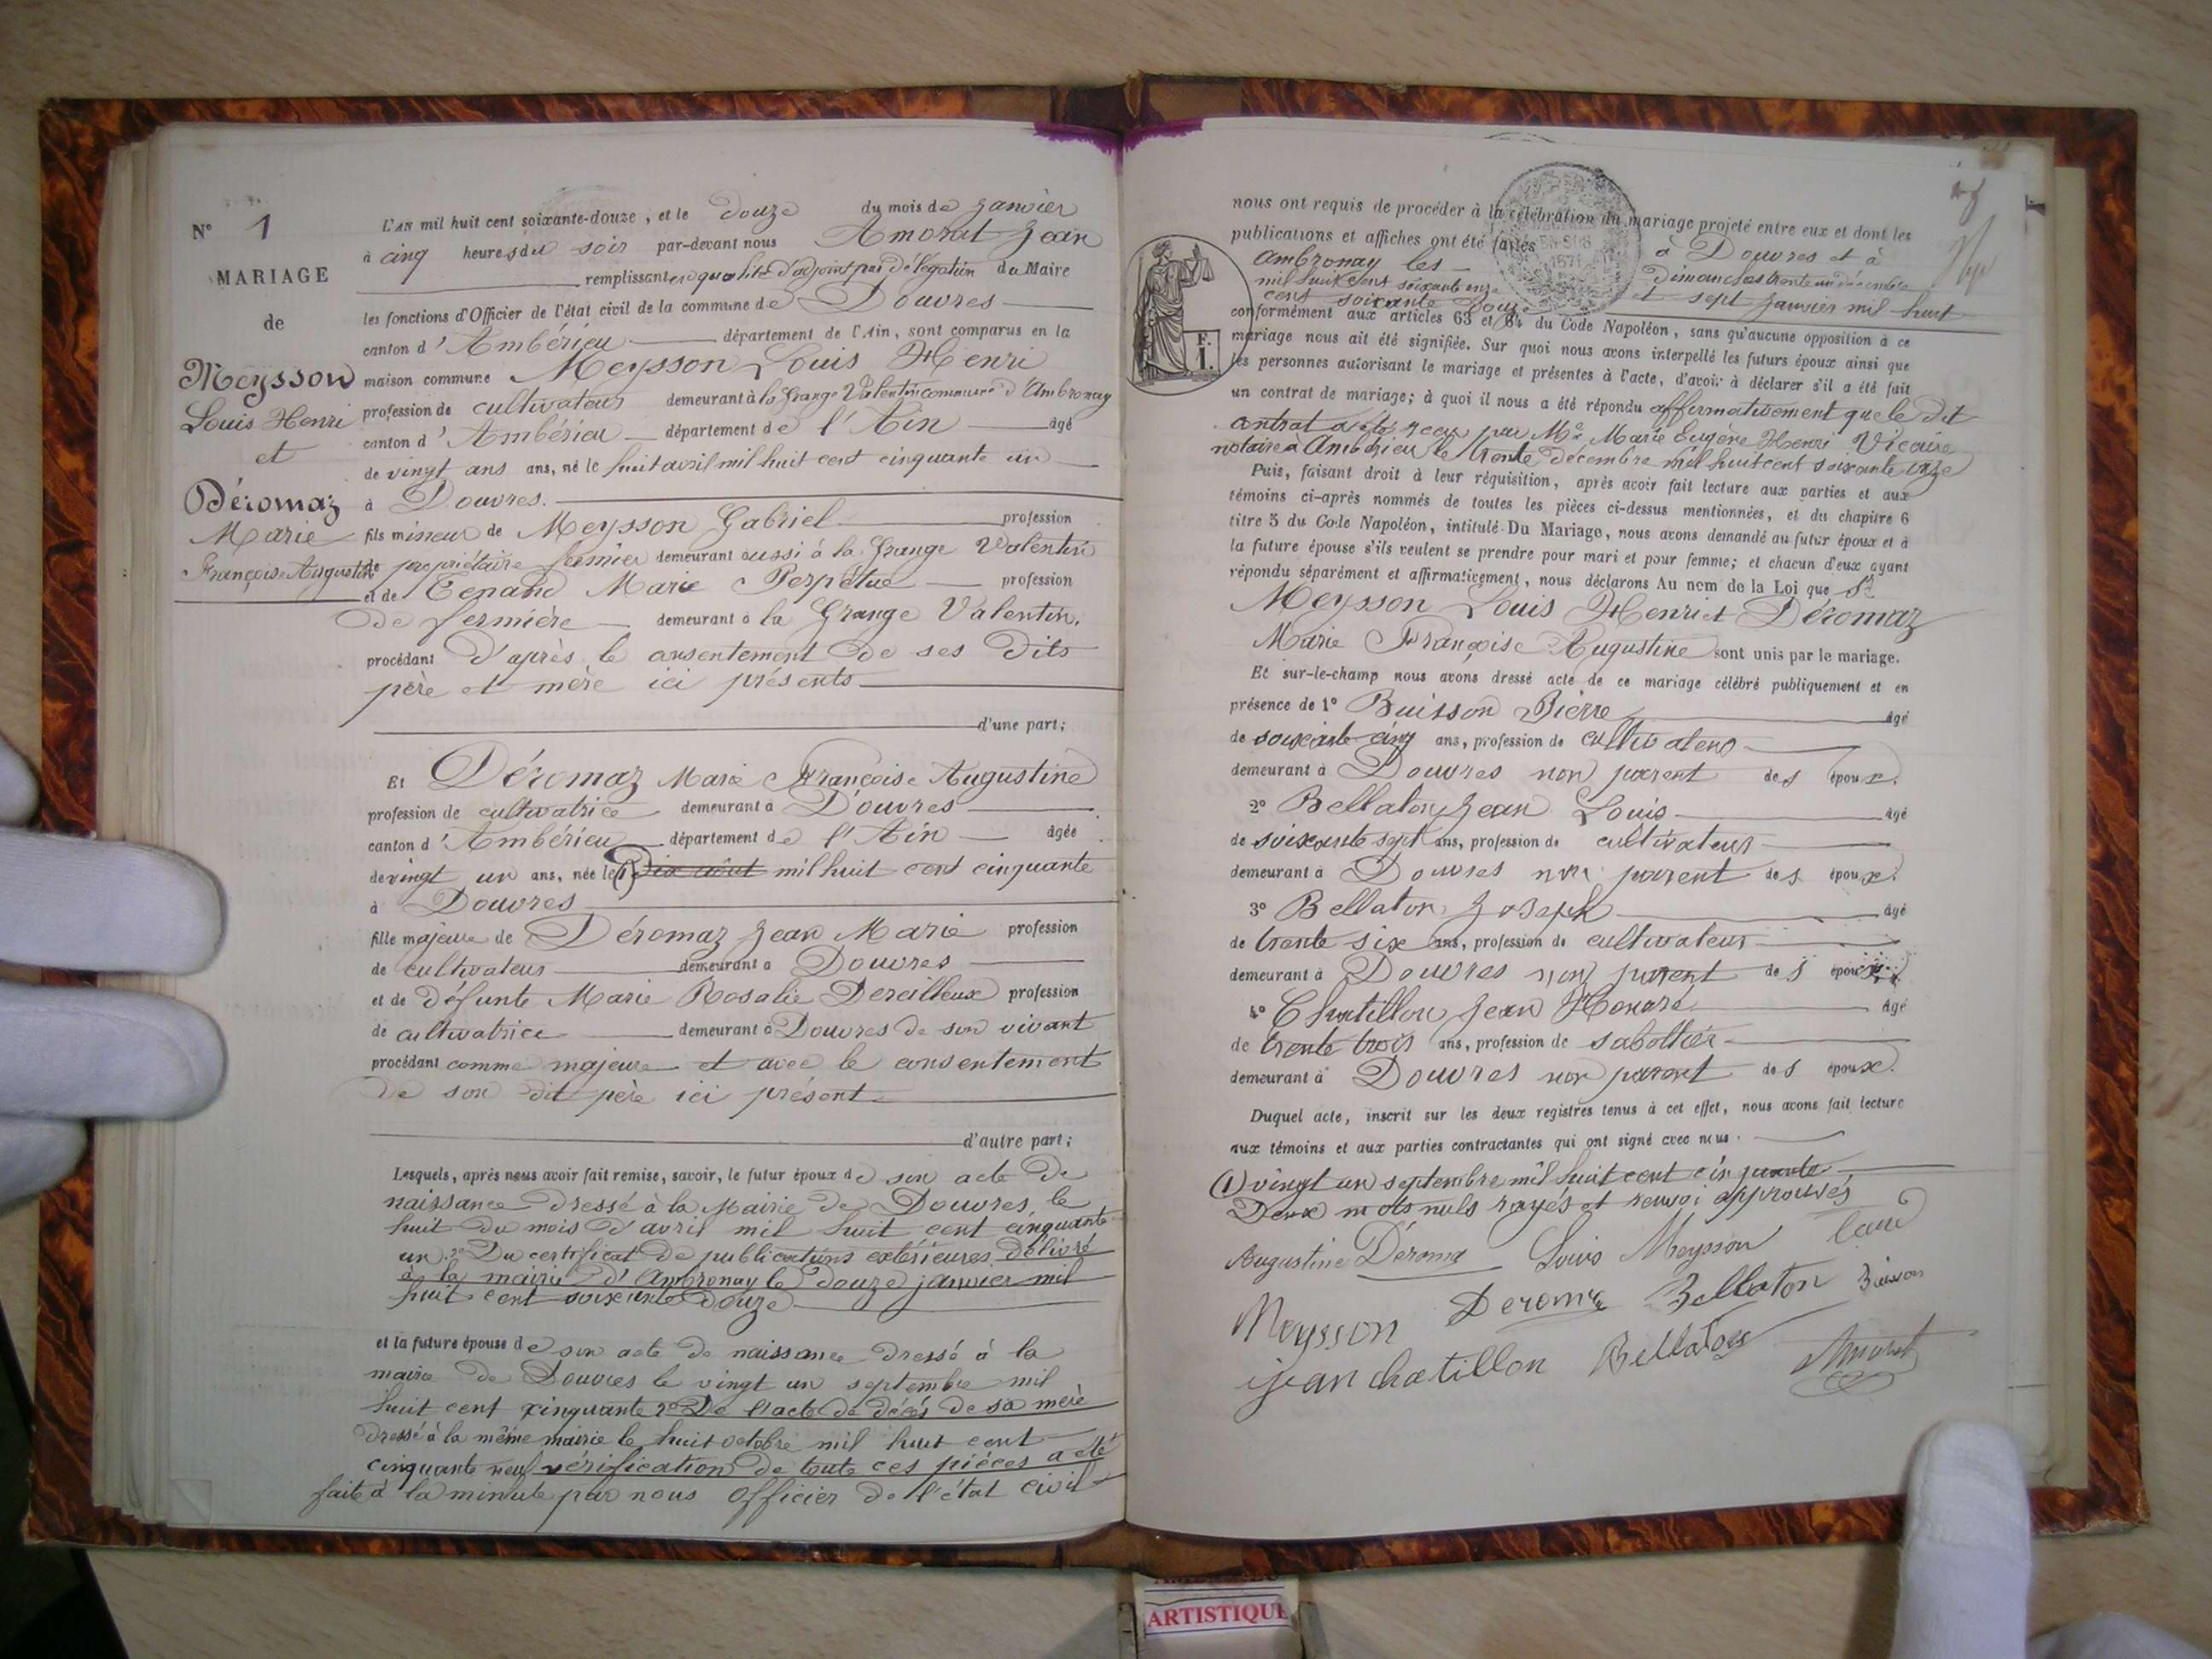 N° 1
MARIAGE
de
Meysson
Louis Henri
et
Déromaz
Marie
Françoise Augustine
L'AN mil huit cent soixante-douze, et le douze du mois de Janvier
à cinq heures du soir par-devant nous Amorat Jean
remplissant en qualité d'adjoint par délégation du Maire
les fonctions d'Officier de l'état civil de la commune de Douvres
canton d'Ambérieu département de l'Ain, sont comparus en la
maison commune Meysson Louis Henri
profession de cultivateur demeurant à la Grange Valentin commune d'Ambronay
canton d'Ambérieu département de l'Ain âgé
de vingt ans ans, né le huit avril mil huit cent cinquante un
à Douvres.
fils mineur de Meysson Gabriel profession
de propriétaire fermier demeurant aussi à la Grange Valentin
et de Tenand Marie Perpétue profession
de fermière demeurant à la Grange Valentin,
procédant d'après le consentement de ses dits
père et mère ici présents
d'une part;
Et Déromaz Marie Françoise Augustine
profession de cultivatrice demeurant à Douvres
canton d'Ambérieu département de l'Ain âgée
de vingt un ans, née le (1) Dix août mil huit cent cinquante
à Douvres
fille majeure de Déromaz Jean Marie profession
de cultivateur demeurant à Douvres
et de défunte Marie Rosalie Dereilleux profession
de cultivatrice demeurant à Douvres de son vivant
procédant comme majeure et avec le consentement
de son dit père ici présent.
d'autre part;
Lesquels, après nous avoir fait remise, savoir, le futur époux de son acte de
naissance dressé à la Mairie de Douvres le
huit du mois d'avril mil huit cent cinquante
un. 2° Du certificat de publications extérieures délivré
à la mairie d'Ambronay le douze janvier mil
huit cent soixante douze
et la future épouse de son acte de naissance dressé à la
mairie de Douvres le vingt un septembre mil
huit cent cinquante 2° De l'acte de décès de sa mère
dressé à la même mairie le huit octobre mil huit cent
cinquante neuf vérification de toute ces pièces a été
faite à la minute par nous officier de l'état civil
nous ont requis de procéder à la célébration du mariage projeté entre eux et dont les
publications et affiches ont été faites à Douvres et à
Ambronay les Dimanches trente un décembre
mil huit cent soixante onze et sept janvier mil huit
cent soixante douze
conformément aux articles 63 et 64 du Code Napoléon, sans qu'aucune opposition à ce
mariage nous ait été signifiée. Sur quoi nous avons interpellé les futurs époux ainsi que
les personnes autorisant le mariage et présentes à l'acte, d'avoir à déclarer s'il a été fait
un contrat de mariage; à quoi il nous a été répondu affirmativement que le dit
contrat a été reçu par Me Marie Eugène Henri Vicaire
notaire à Ambérieu le trente décembre mil huit cent soixante onze
Puis, faisant droit à leur réquisition, après avoir fait lecture aux parties et aux
témoins ci-après nommés de toutes les pièces ci-dessus mentionnées, et du chapitre 6
titre 5 du Code Napoléon, intitulé Du Mariage, nous avons demandé au futur époux et à
la future épouse s'ils veulent se prendre pour mari et pour femme; et chacun d'eux ayant
répondu séparément et affirmativement, nous déclarons Au nom de la Loi que Sr
Meysson Louis Henri et Déromaz
Marie Françoise Augustine sont unis par le mariage.
Et sur-le-champ nous avons dressé acte de ce mariage célébré publiquement et en
présence de 1° Buisson Pierre âgé
de soixante cinq ans, profession de cultivateur
demeurant à Douvres non parent des époux.
2° Bellaton Jean Louis âgé
de soixante sept ans, profession de cultivateur
demeurant à Douvres non parent des époux.
3° Bellaton Joseph âgé
de trente six ans, profession de cultivateur
demeurant à Douvres non parent des époux
4° Chatillon Jean Honoré âgé
de trente trois ans, profession de sabottier
demeurant à Douvres non parent des époux.
Duquel acte, inscrit sur les deux registres tenus à cet effet, nous avons fait lecture
aux témoins et aux parties contractantes qui ont signé avec nous.
(1) vingt un septembre mil huit cent cinquante.
Deux mots nuls rayés et renvoi approuvés
Augustine Déroma Louis Meysson
Meysson Deroma Bellaton Buisson
jean chatillon Bellaton Amorat
F.
1.
ARTISTIQUE